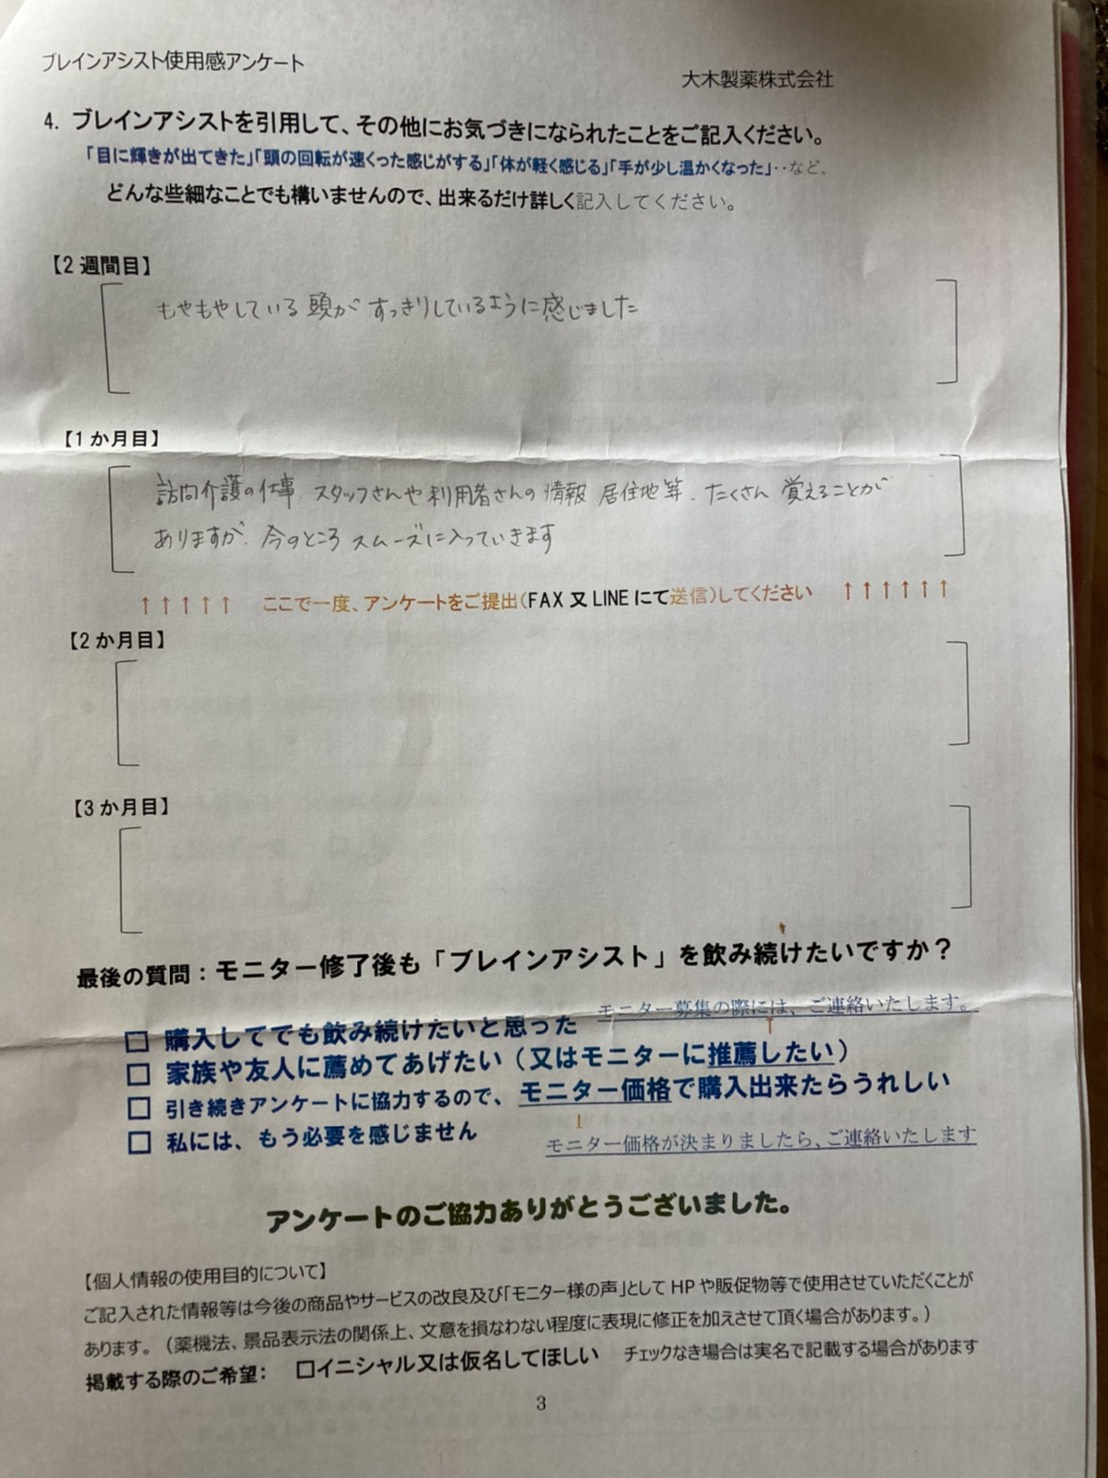 ブレインアシスト使用感アンケート
大木製薬株式会社
4. ブレインアシストを引用して、その他にお気づきになられたことをご記入ください。
「目に輝きが出てきた」「頭の回転が速くった感じがする」「体が軽く感じる」「手が少し温かくなった」‥など、
どんな些細なことでも構いませんので、出来るだけ詳しく記入してください。
【2週間目】
もやもやしている頭がすっきりしているように感じました
【1か月目】
訪問介護の仕事 スタッフさんや利用者さんの情報 居住地等、たくさん覚えることが
ありますが、今のところスムーズに入っていきます
↑↑↑↑↑ ここで一度、アンケートをご提出(FAX又LINEにて送信)してください ↑↑↑↑↑↑
【2か月目】
【3か月目】
最後の質問：モニター修了後も「ブレインアシスト」を飲み続けたいですか？
モニター募集の際には、ご連絡いたします。
□ 購入してでも飲み続けたいと思った
↑
□ 家族や友人に薦めてあげたい（又はモニターに推薦したい）
□ 引き続きアンケートに協力するので、モニター価格で購入出来たらうれしい
□ 私には、もう必要を感じません
モニター価格が決まりましたら、ご連絡いたします
アンケートのご協力ありがとうございました。
【個人情報の使用目的について】
ご記入された情報等は今後の商品やサービスの改良及び「モニター様の声」としてHPや販促物等で使用させていただくことが
あります。（薬機法、景品表示法の関係上、文意を損なわない程度に表現に修正を加えさせて頂く場合があります。）
掲載する際のご希望： □イニシャル又は仮名してほしい チェックなき場合は実名で記載する場合があります
3